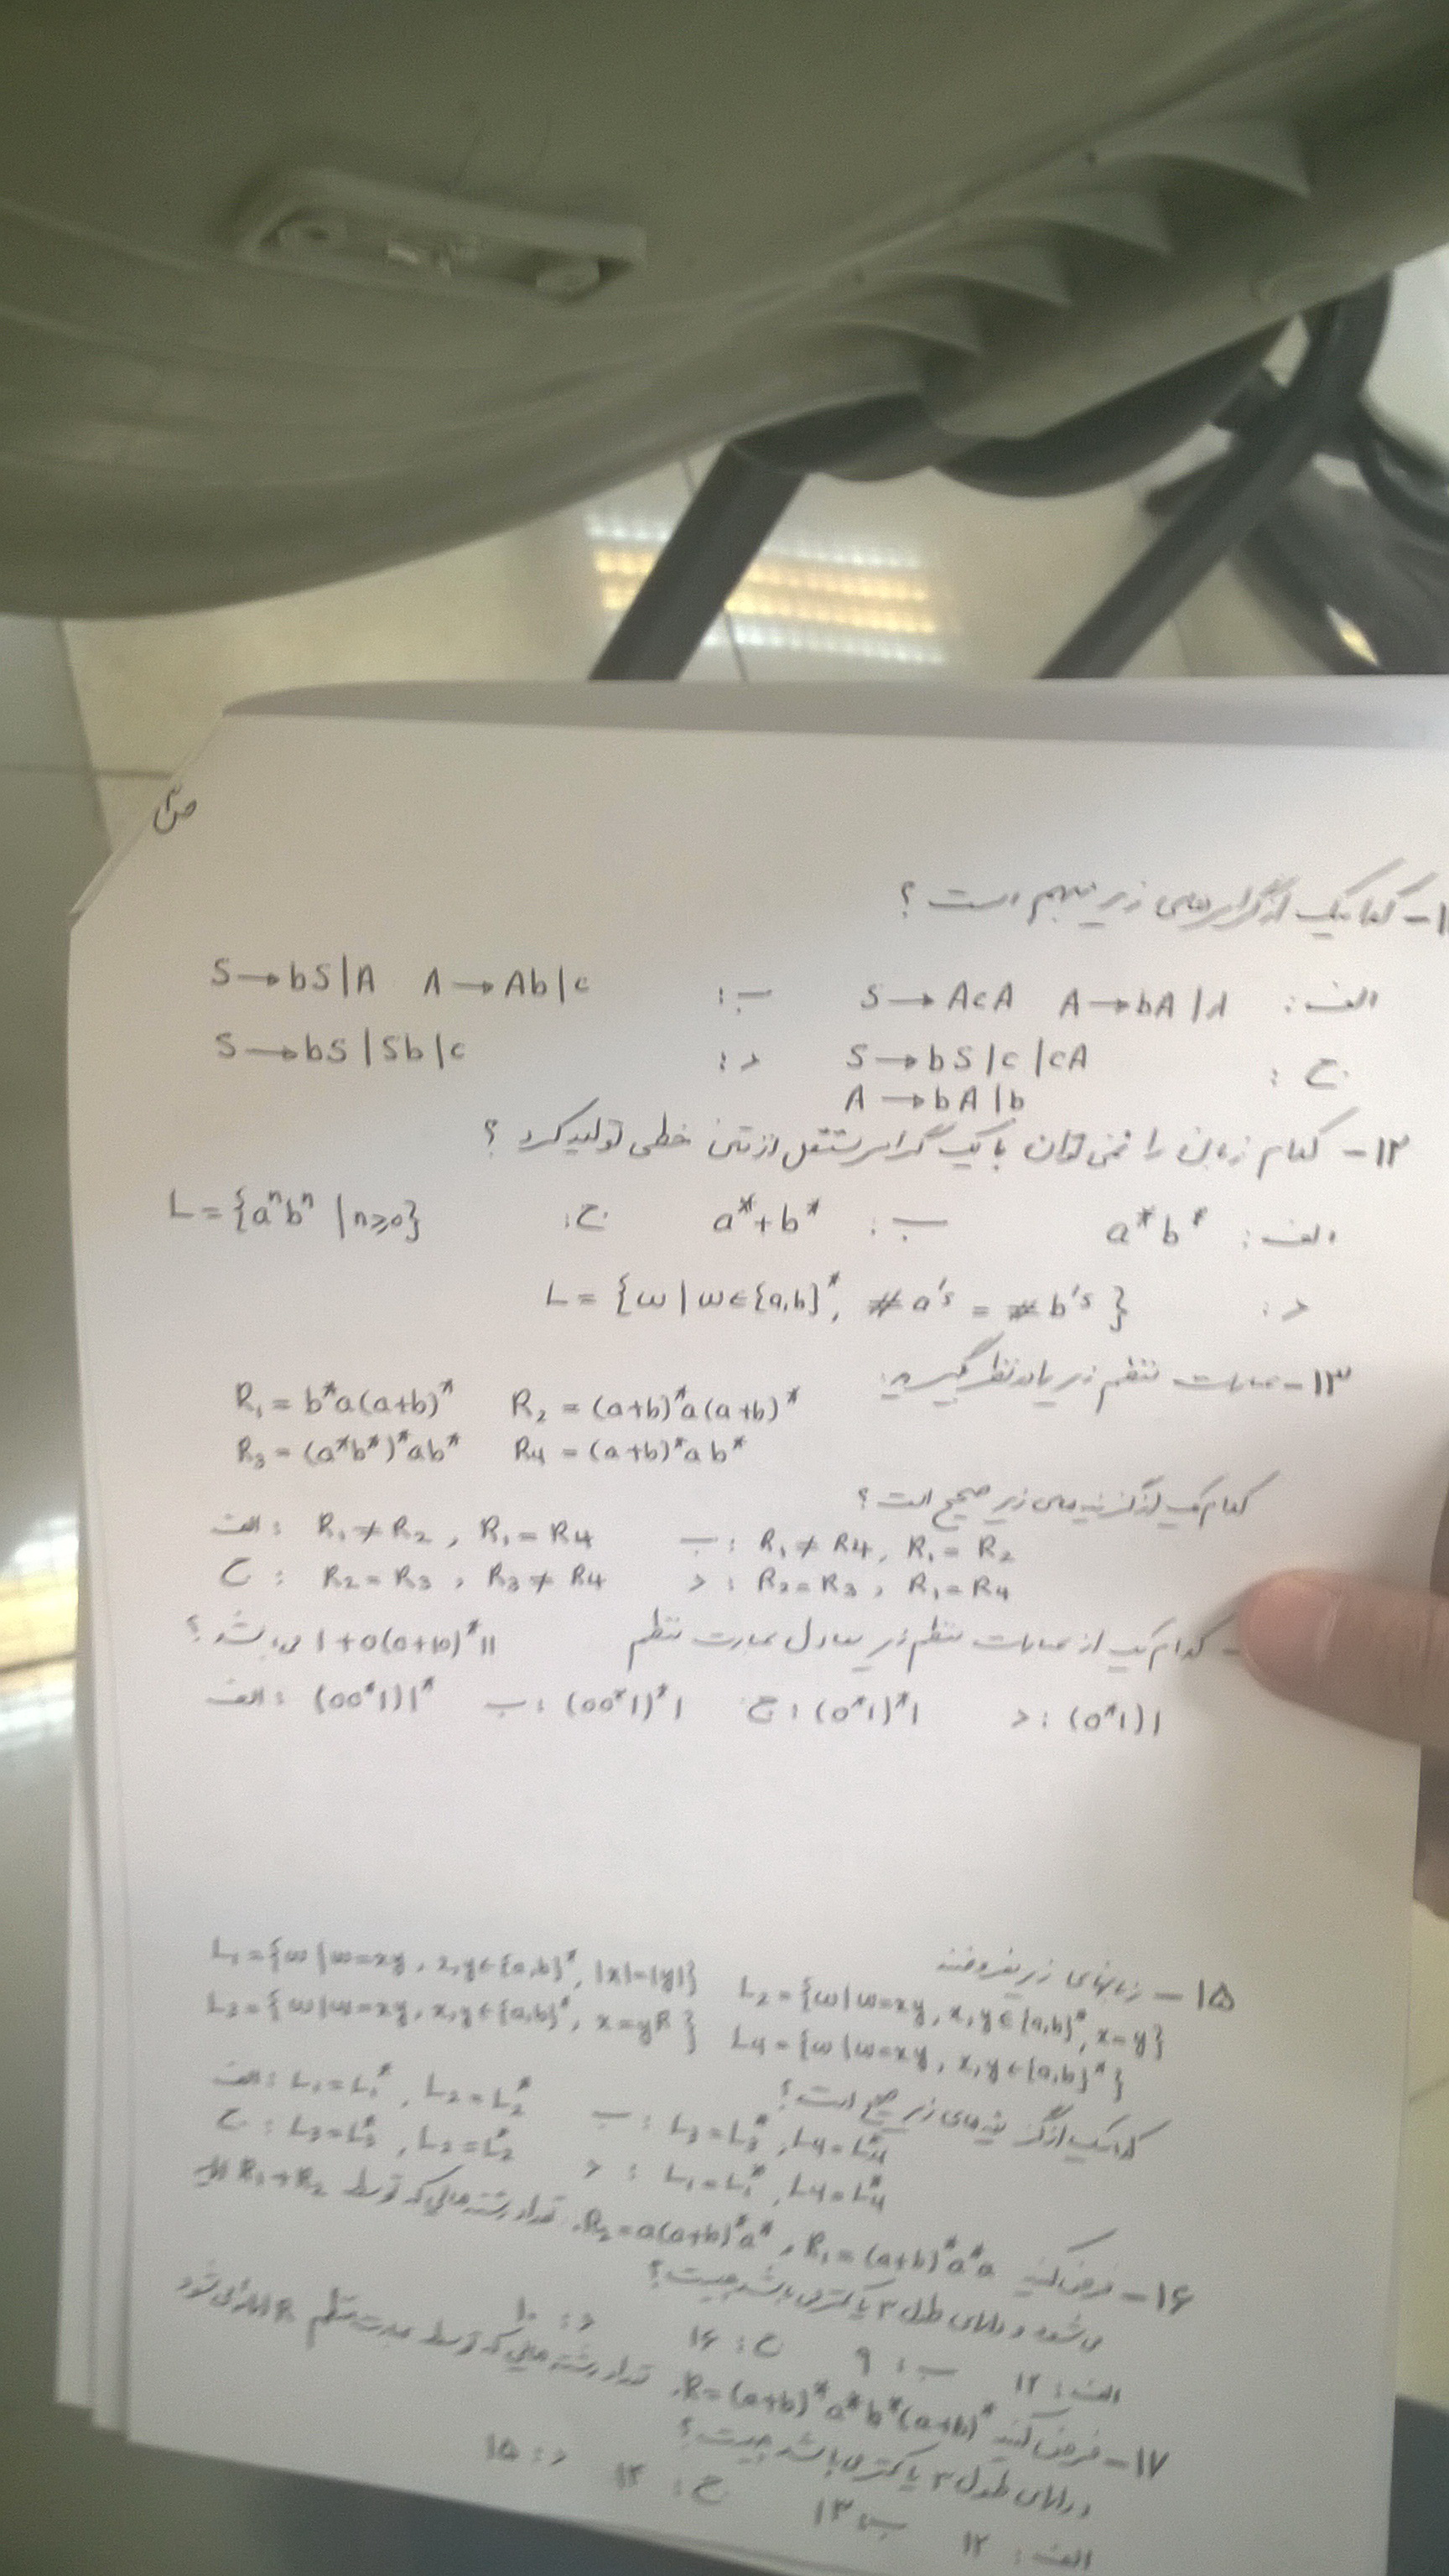 ص۲
۱- کدامیک از گرامرهای زیر مبهم است؟
الف: S→AcA A→bA|λ ب: S→bS|A A→Ab|c
ج: S→bS|c|cA د: S→bS|Sb|c
A→bA|b
۱۲- کدام زبان را نمی توان با یک گرامر مستقل از متن خطی تولید کرد؟
الف: a*b* ب: a*+b* ج: L={aⁿbⁿ | n≥0}
د: L={ω|ω∈{a,b}*, #a's = #b's}
۱۳- عبارات منظم زیر را در نظر بگیرید:
R₁= b*a(a+b)* R₂=(a+b)*a(a+b)*
R₃=(a*b*)*ab* R₄=(a+b)*ab*
کدام یک از گزینه های زیر صحیح است؟
الف: R₁≠R₂, R₁=R₄ ب: R₁≠R₄, R₁=R₂
ج: R₂=R₃, R₃≠R₄ د: R₂=R₃, R₁=R₄
- کدام یک از عبارات منظم زیر معادل عبارت منظم 1+0(0+10)*11 می باشد؟
الف: (00*1)1* ب: (00*1)*1 ج: (0*1)*1 د: (0*1)1
۱۵- زبانهای زیر مفروضند
L₁={ω|ω=xy, x,y∈{a,b}*, |x|=|y|} L₂={ω|ω=xy, x,y∈{a,b}*, x=y}
L₃={ω|ω=xy, x,y∈{a,b}*, x=yᴿ} L₄={ω|ω=xy, x,y∈{a,b}*}
کدامیک از گزینه های زیر صحیح است؟
الف: L₁=L₁*, L₂=L₂* ب: L₃=L₃*, L₄=L₄*
ج: L₃=L₃*, L₂=L₂* د: L₁=L₁*, L₄=L₄*
۱۶- فرض کنید R₁=(a+b)*a*a , R₂=a(a+b)*a*. تعداد رشته هایی که توسط R₁+R₂
می شود و دارای طول ۳ یا کمتر می باشد چیست؟
الف: ۱۲ ب: ۹ ج: ۱۶ د: ۱۰
۱۷- فرض کنید R=(a+b)*a*b*(a+b)*. تعداد رشته هایی که توسط عبارت منظم R
و دارای طول ۳ یا کمتر می باشد چیست؟
الف: ۱۲ ب: ۱۳ ج: ۱۴ د: ۱۵